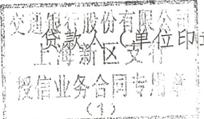 交通银行股份有限公司
贷款人(单位印
上海新区支行
授信业务合同专用章
(1)